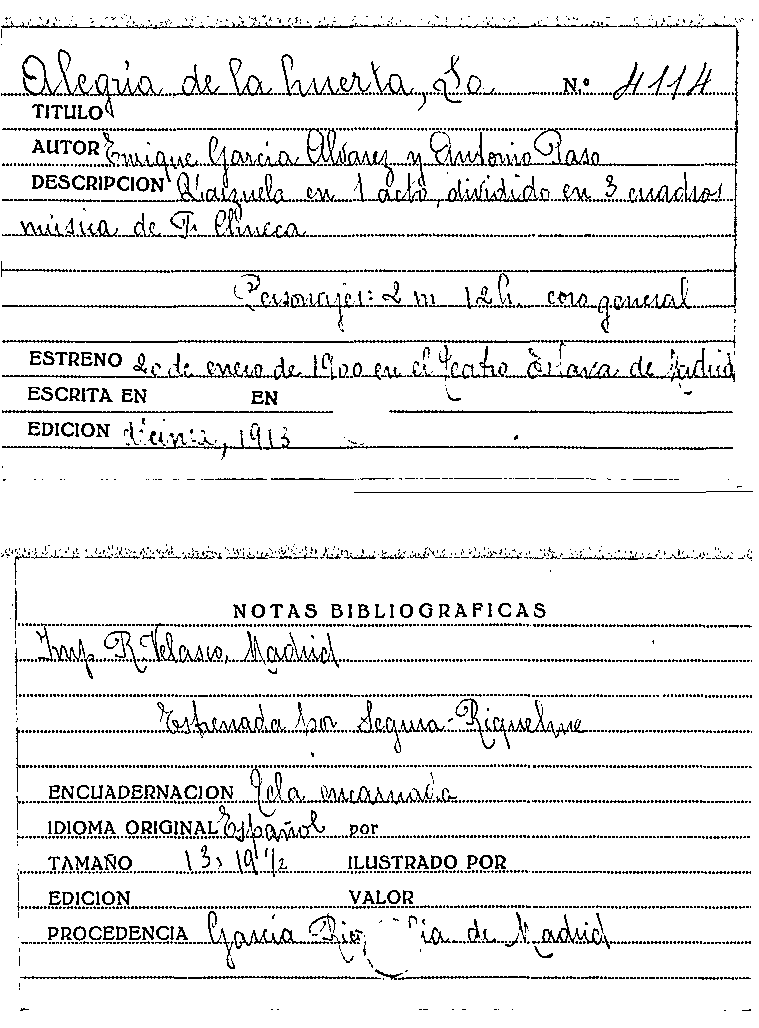 Alegría de la huerta, La N.º 4114
TITULO
AUTOR Enrique García Alvarez y Antonio Paso
DESCRIPCION Zarzuela en 1 acto, dividido en 3 cuadros
música de F. Chueca
Personajes: 2 m 12 h. coro general
ESTRENO 20 de enero de 1900 en el Teatro Eslava de Madrid
ESCRITA EN EN
EDICION 1913
NOTAS BIBLIOGRAFICAS
Imp R. Velasco, Madrid
Estrenada por Segura-Riquelme
ENCUADERNACION Tela encarnada
IDIOMA ORIGINAL Español por
TAMAÑO 13 19 1/2 ILUSTRADO POR
EDICION VALOR
PROCEDENCIA García de Madrid